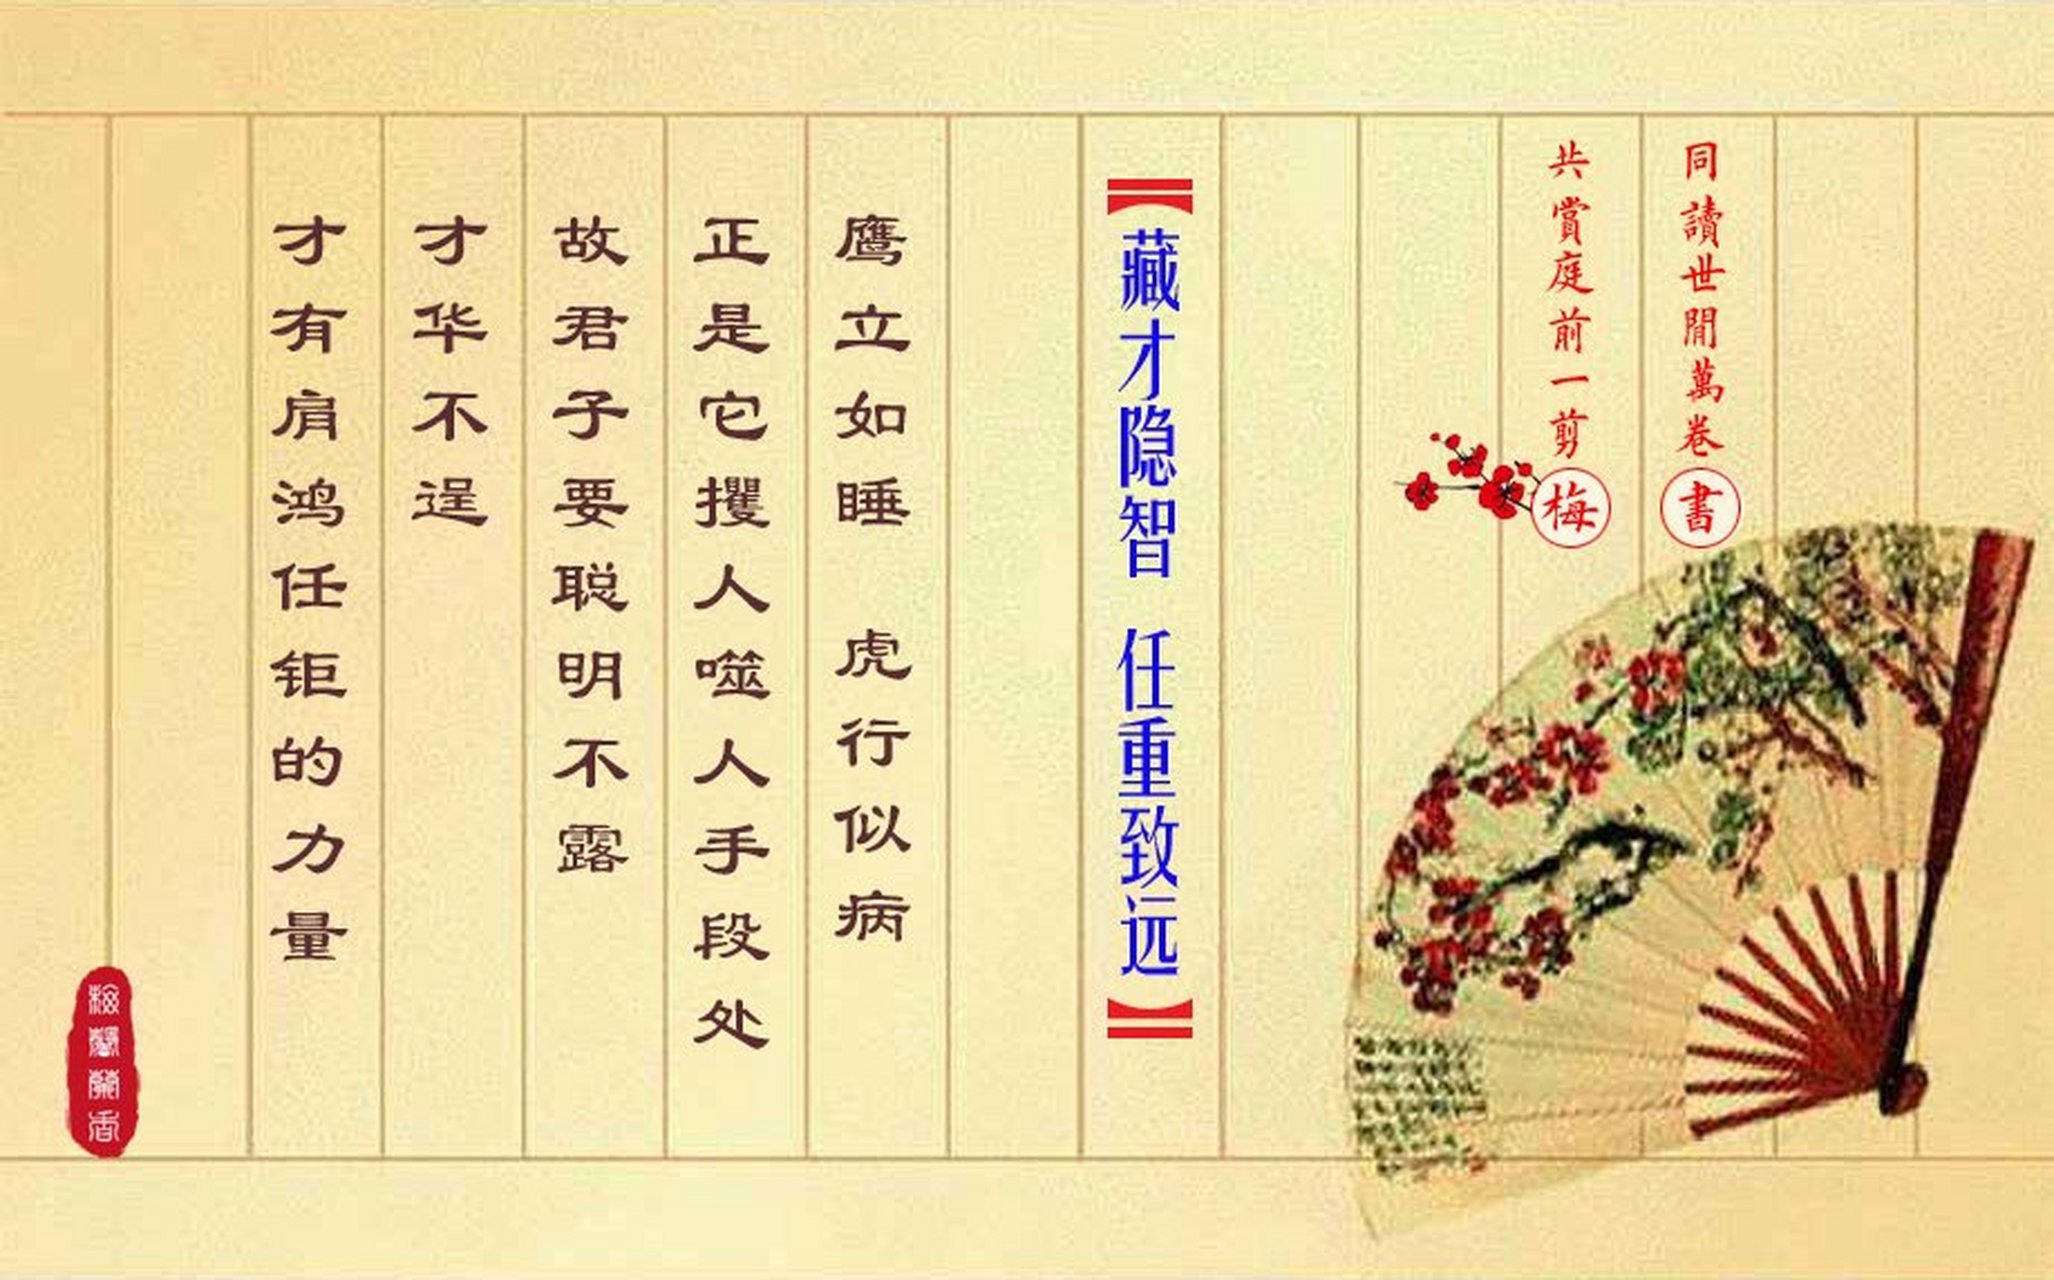 同讀世間萬卷書
共賞庭前一剪梅
【藏才隐智 任重致远】
鹰立如睡 虎行似病
正是它攫人噬人手段处
故君子要聪明不露
才华不逞
才有肩鸿任钜的力量